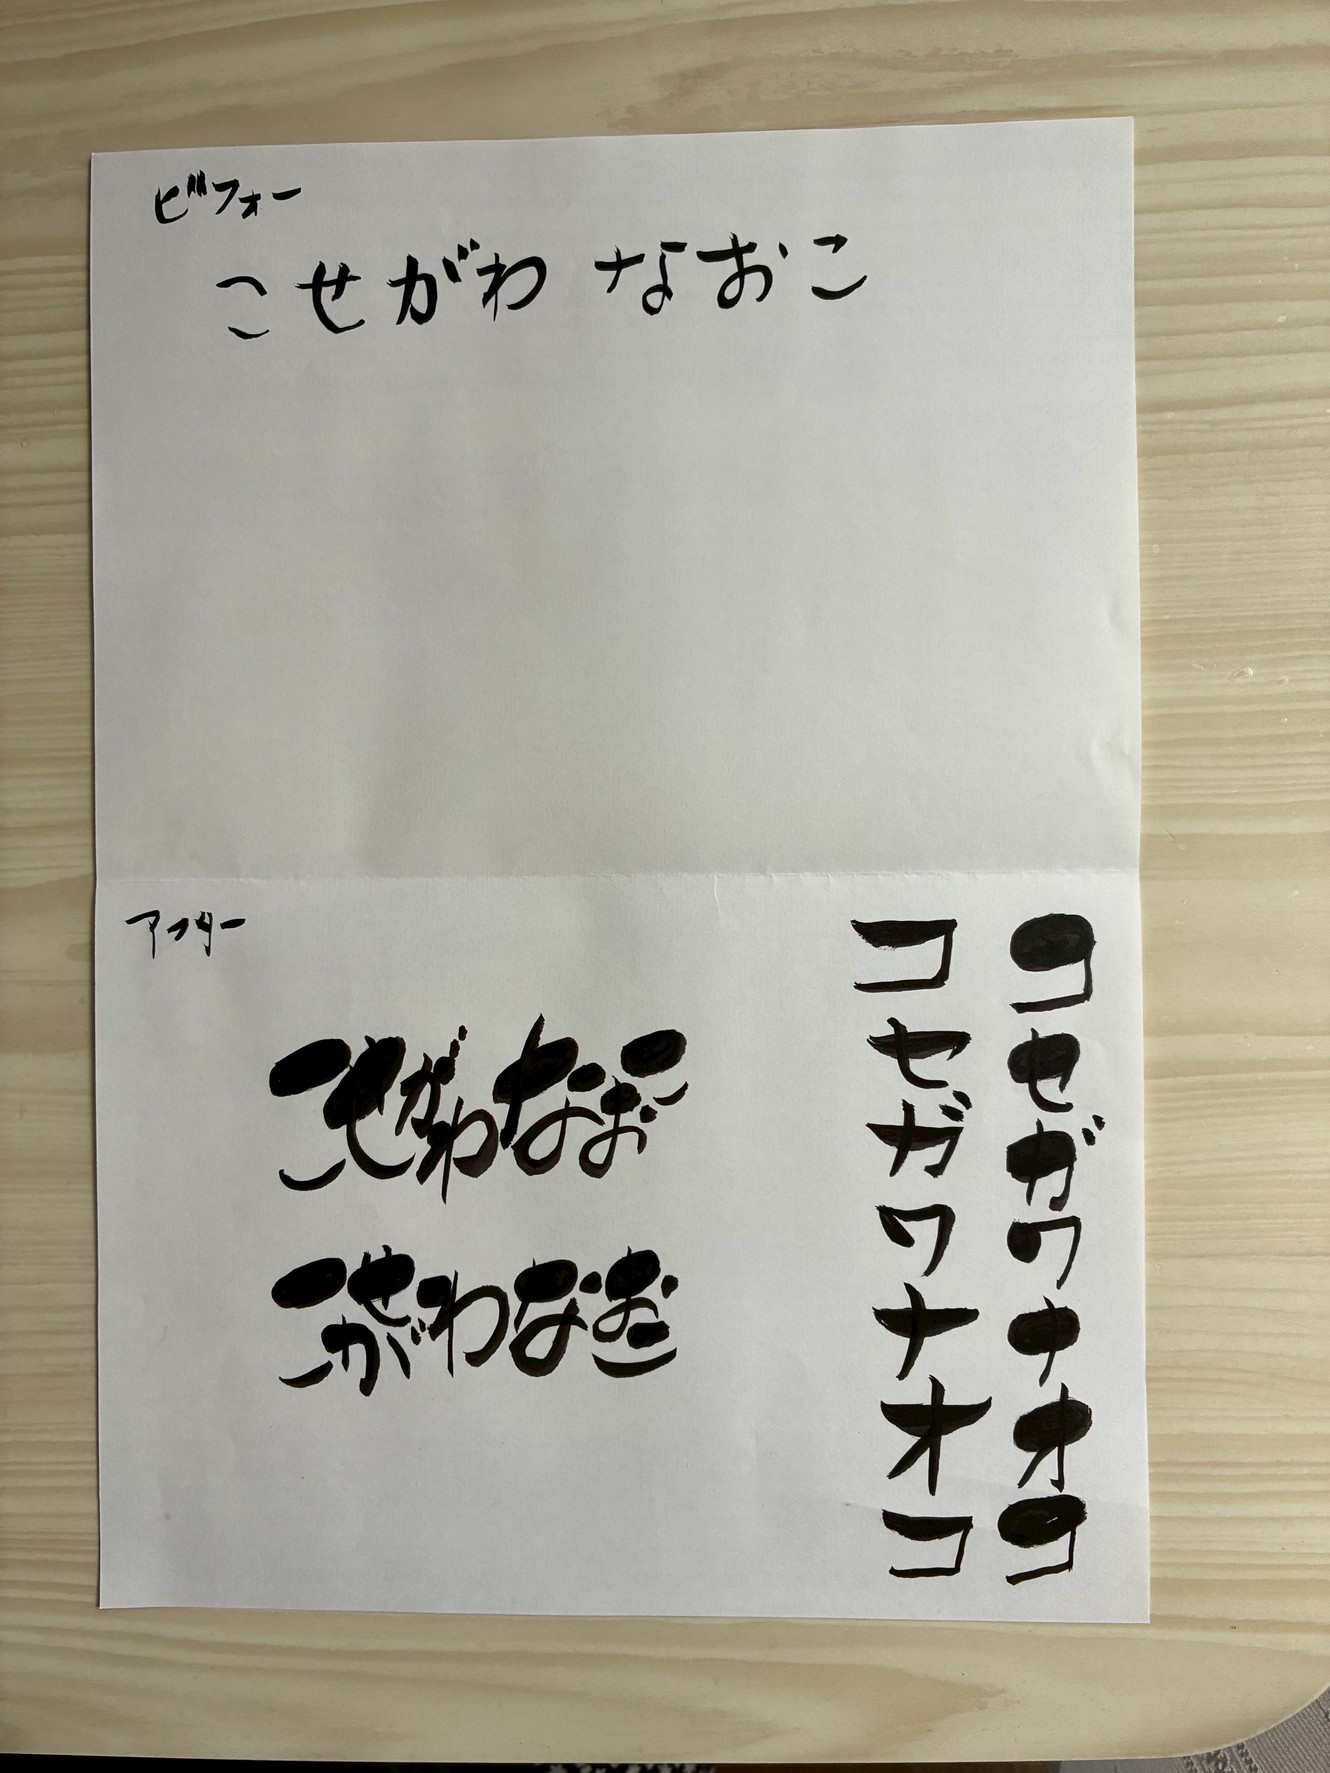 ビフォー
こせがわ なおこ
アフター
こせがわなおこ
こせがわなおこ
コセガワナオコ
コセガワナオコ